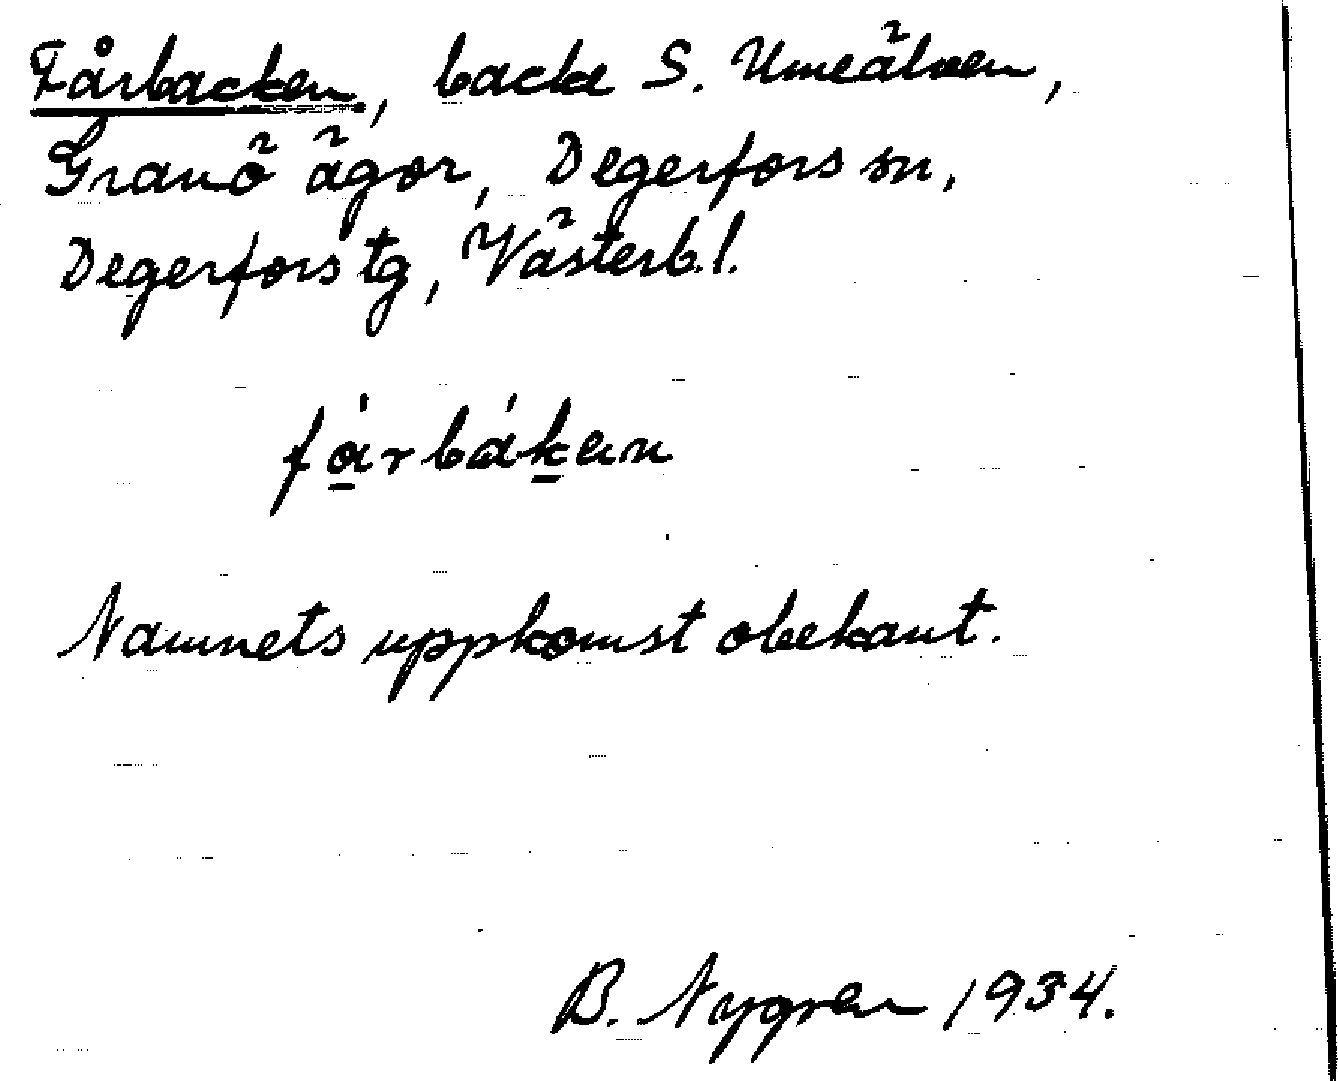 Fårbacken, backe S. Umeälven,
Granö ägor, Degerfors sn,
Degerfors tg, Västerb. l.
fá̱rbáḵen
Namnets uppkomst obekant.
B. Nygren 1934.